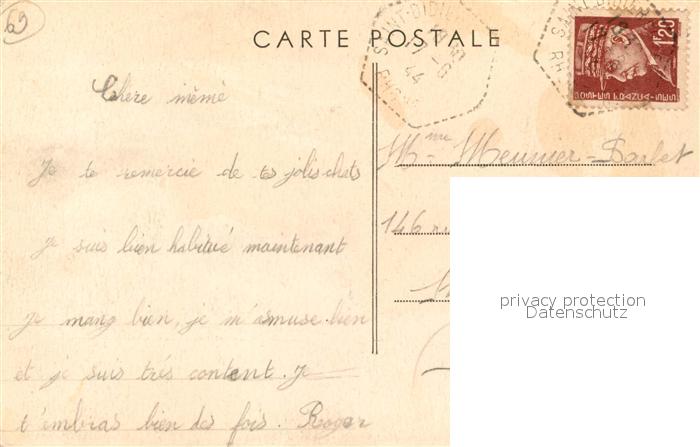 69
CARTE POSTALE
SAINT-DIDIER
44
RH
1F20
POSTES FRANÇAISES
Chere mémé
Je te remercie de tes jolis chats
je suis bien habitué maintenant
je mang bien, je m'amuse bien
et je suis trés content. Je
t'embras bien des fois. Roger
Mme Meunier-Barlet
146
privacy protection
Datenschutz